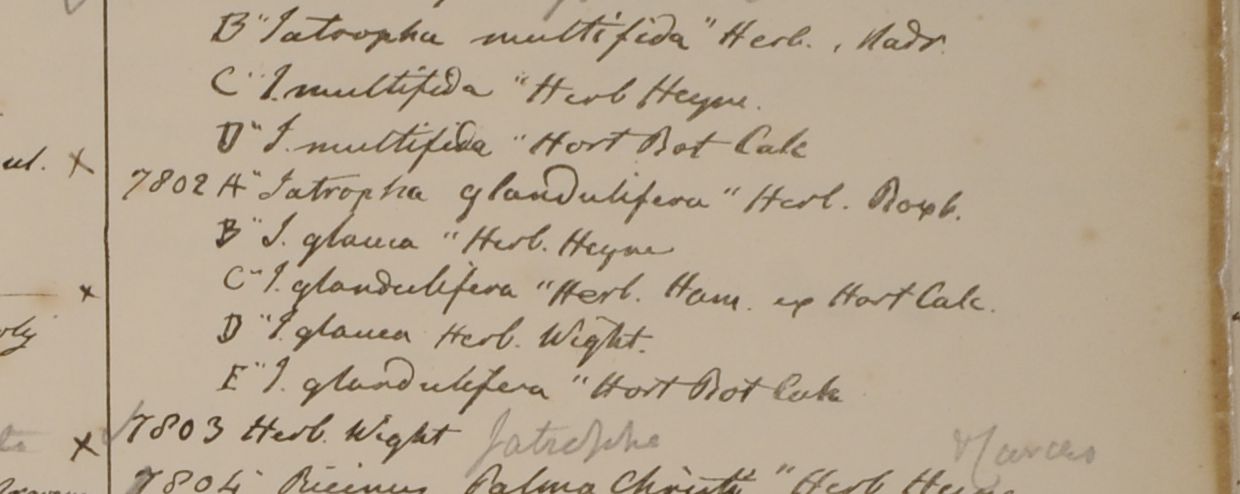 B "Jatropha multifida" Herb. Madr.
C "J. multifida" Herb Heyne.
D "J. multifida" Hort Bot Calc
ul. x
7802 A "Jatropha glandulifera" Herb. Roxb.
B "J. glauca" Herb. Heyne
C "J. glandulifera" Herb. Ham. ex Hort Calc.
x
D "J. glauca Herb. Wight.
E "J. glandulifera" Hort Bot Calc
x 7803 Herb. Wight Jatropha
7804 Ricinus Palma Christi" Herb Heyne